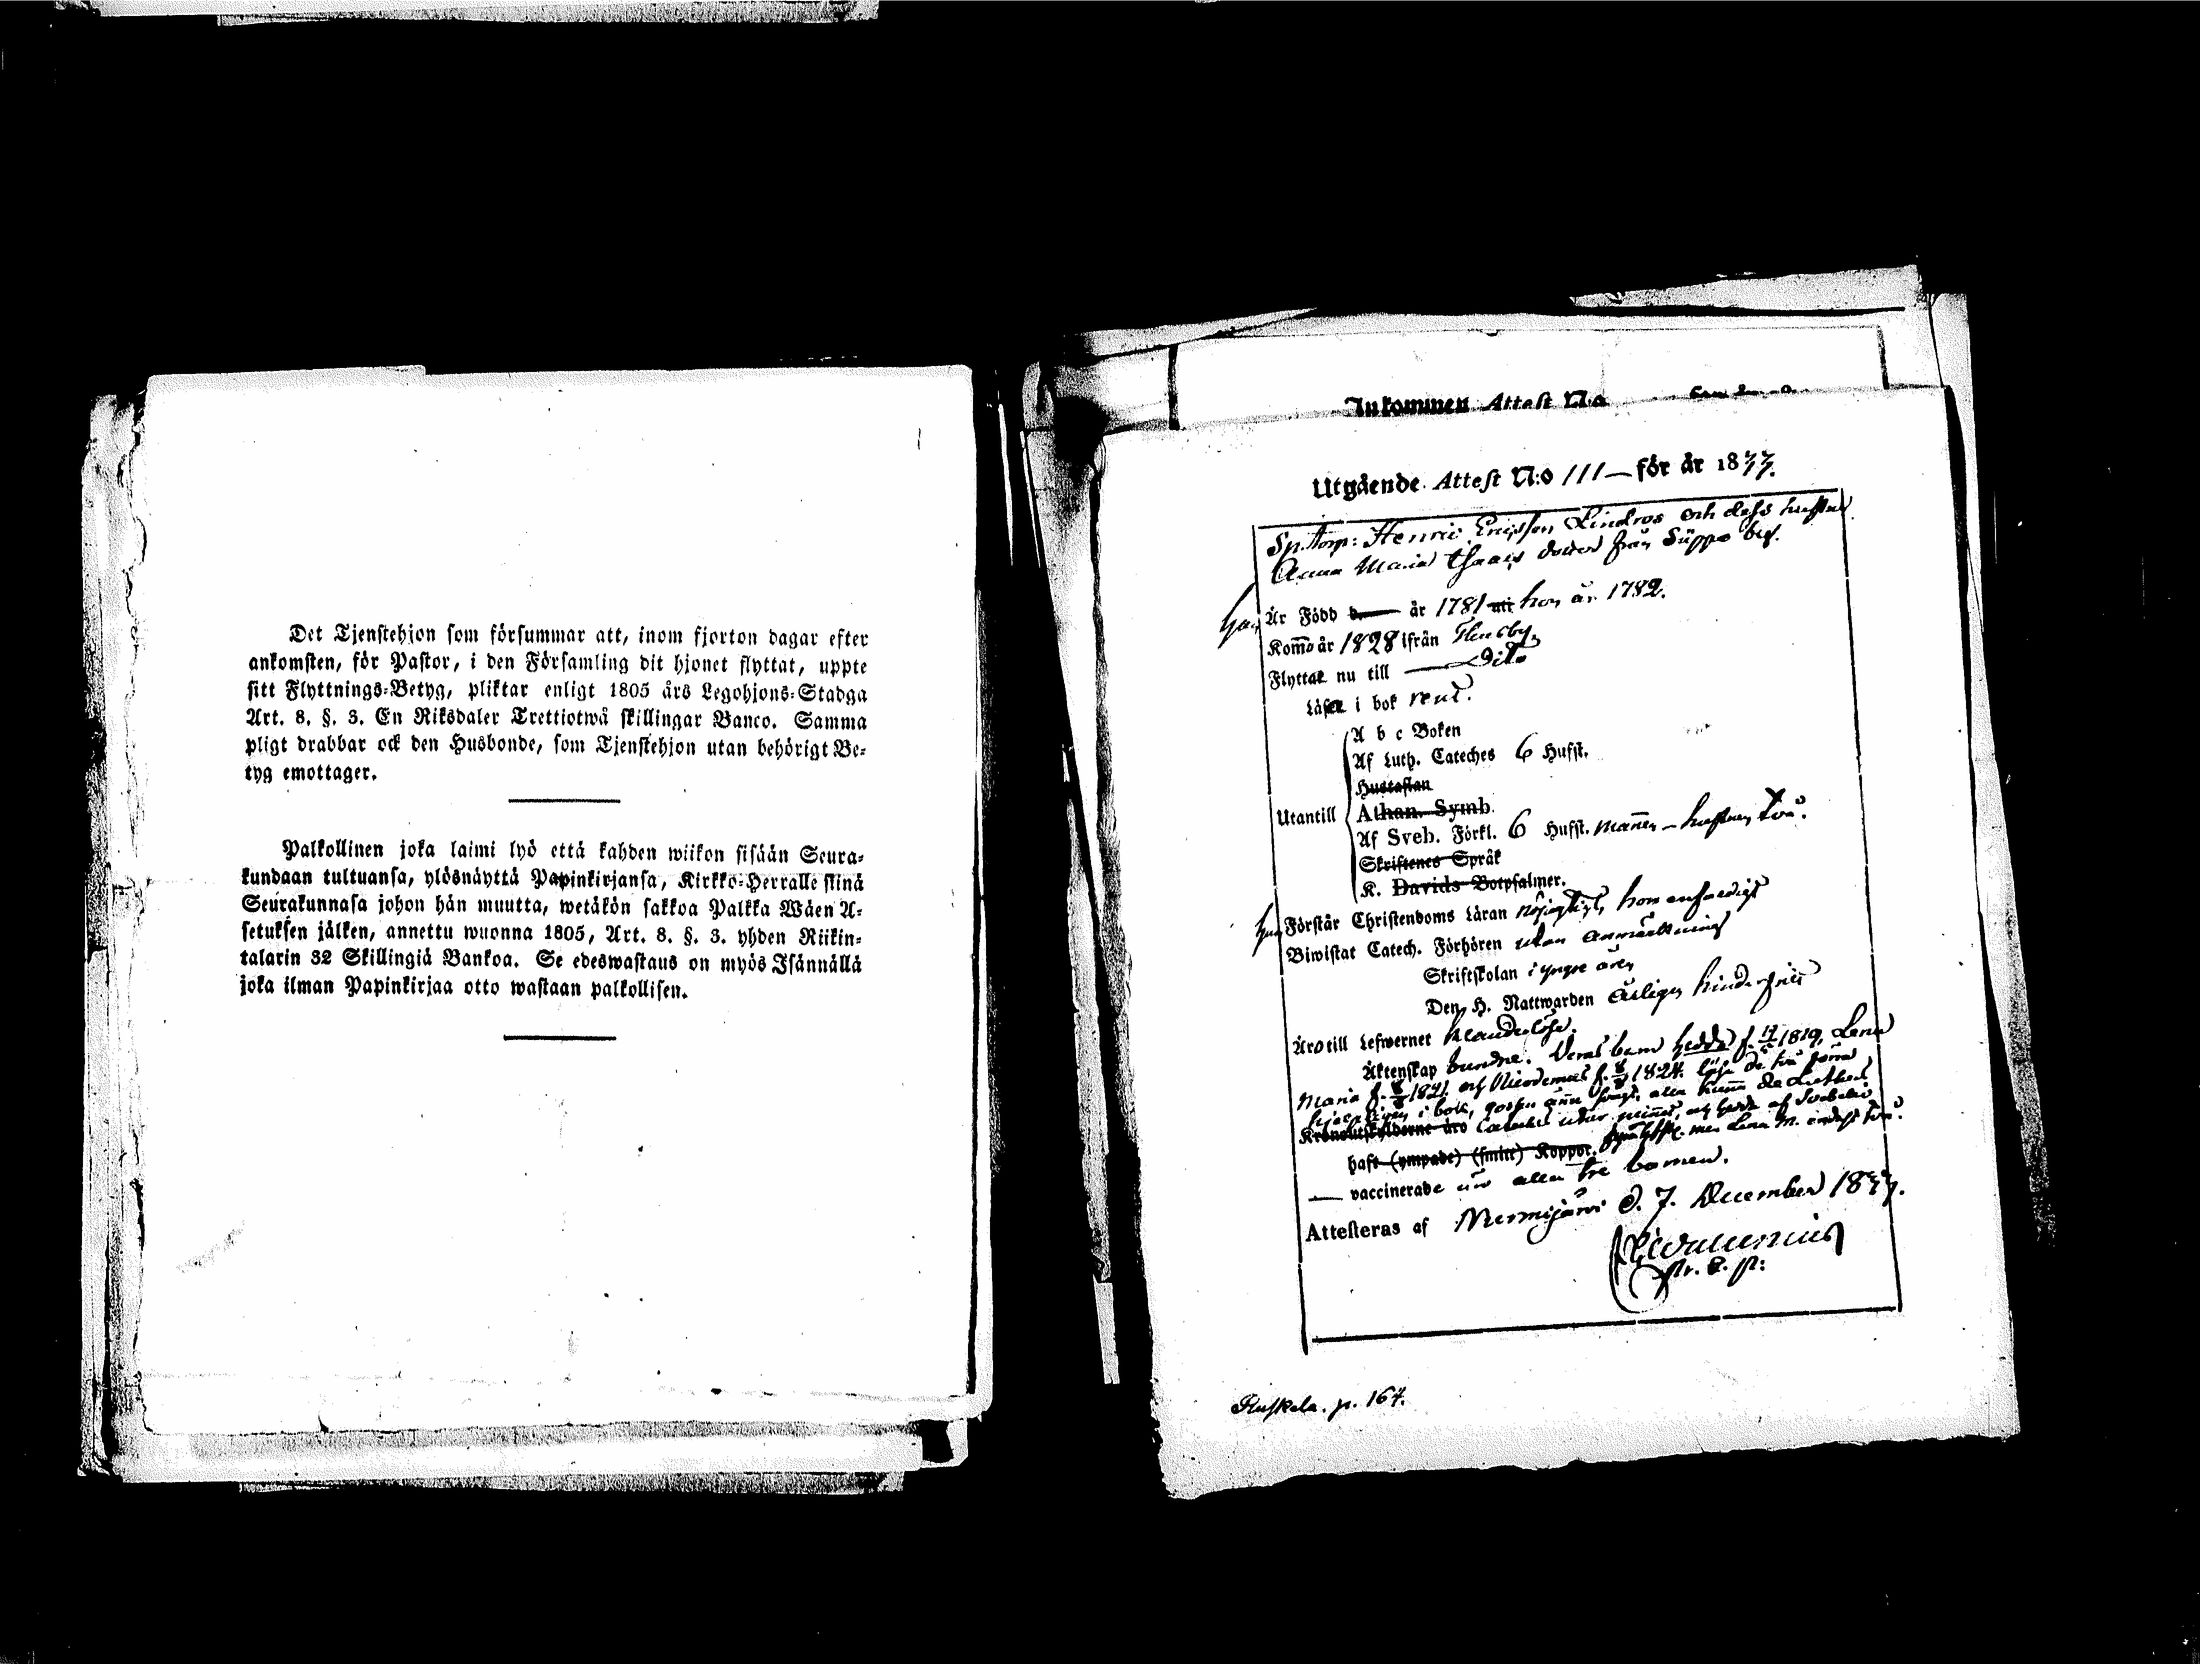 Det Tjenstehjon som försummar att, inom fjorton dagar efter
ankomsten, för Pastor, i den Församling dit hjonet flyttat, uppte
sitt Flyttnings-Betyg, pliktar enligt 1805 års Legohjons-Stadga
Art. 8. §. 3. En Riksdaler Trettiotwå skillingar Banco. Samma
pligt drabbar ock den Husbonde, som Tjenstehjon utan behörigt Be-
tyg emottager.
Palkollinen joka laimi lyö että kahden wiikon sisään Seura-
kundaan tultuansa, ylösnäyttä Papinkirjansa, Kirkko-Herralle siinä
Seurakunnasa johon hän muutta, wetäkön sakkoa Palkka Wäen A-
setuksen jälken, annettu wuonna 1805, Art. 8. §. 3. yhden Riikin-
talarin 32 Skillingiä Bankoa. Se edeswastaus on myös Isännällä
joka ilman Papinkirjaa otto wastaan palkollisen.
Inkommen Attest N:o
Utgående Attest N:o 111 — för år 1833.
Sp. torp: Henric Ericsson Lindros och dess hustru
Anna Maria Thomas dotter från Süppo by.
Han Är Född d. — år 1781 uti hon år 1782.
Kommo år 1828 ifrån Thusby
Flyttar nu till — Dito
Läser i bok rent.
A b c Boken
Af Luth. Cateches 6 Hufst.
Hustaflan
Utantill Athan. Symb.
Af Sveb. Förkl. 6 Hufst. mannen – hustrun två.
Skriftenes Språk
K. Davids Botpsalmer.
Han Förstår Christendoms Läran nöjagtigt, hon enfaldigt
Biwistat Catech. Förhören utan anmärkning
Skriftskolan i yngre åren
Den H. Nattwarden årligen hinderfritt
Äro till Lefwernet klanderlöse.
Äktenskap bundne. Deras barn Hedda f. 1819, Lena
Maria f. 1821 och Nicodemus f. 1824. läsa de två förra
i bok, alla kunna de Lutheri
Kronoutskylderne äro Cateches utur minnet, och Hedda af Svebelii
haft (ympade) (smitt) Koppor. men Lena M. endast två.
— vaccinerade äro alla tre barnen.
Attesteras af Nurmijärvi d. 7. December 1833.
p. 164.